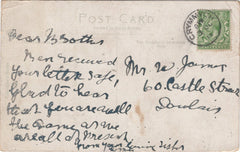 POST CARD
Dear Brother
I have received
your letter safe,
Glad to hear
that you are well
the same as we
are all at present
from your loving sister
Mr W James
60 Castle Street
Dowlais